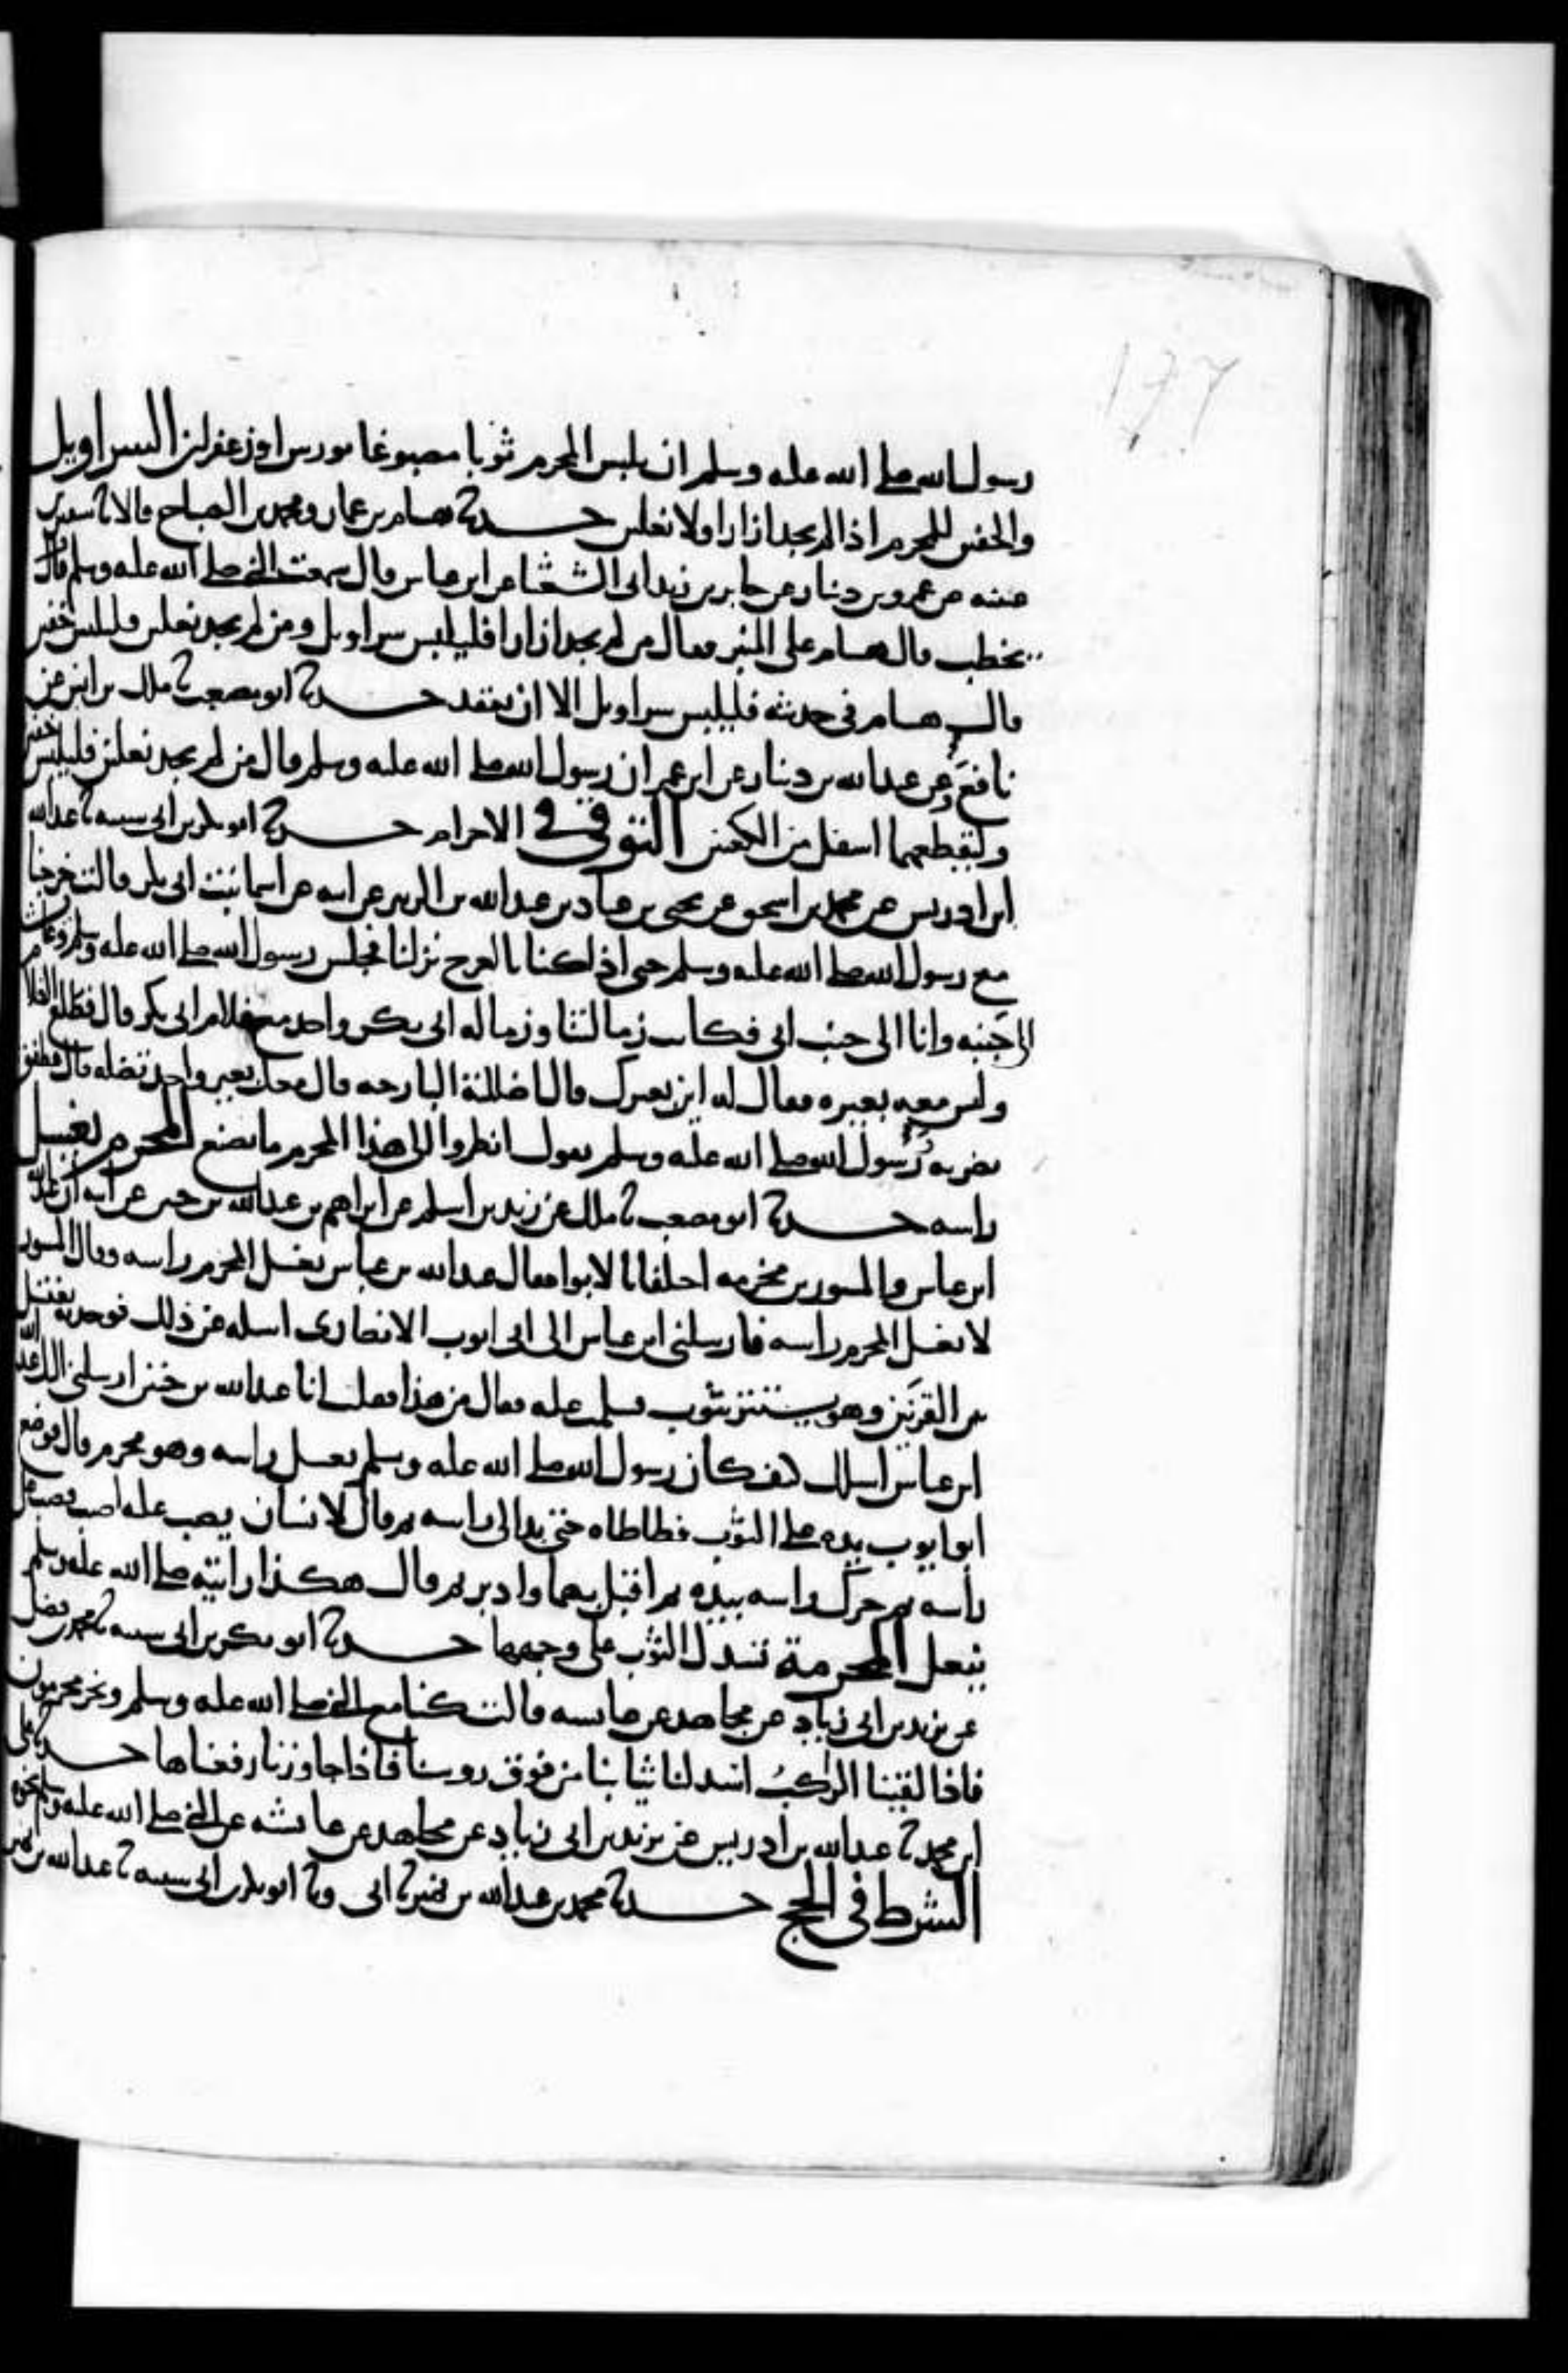 177
رسول الله صلى الله عليه وسلم ان يلبس المحرم ثوبا مصبوغا بورس او زعفران السراويل
والخفين للمحرم اذا لم يجد ازارا او لا نعلين حدثنا هشام بن عمار ومحمد بن الصباح قالا نا سفين بن
عيينه عن عمرو بن دينار عن جابر بن زيد ابى الشعثا عن ابن عباس قال سمعت النبي صلى الله عليه وسلم قال
يخطب قال هشام على المنبر فقال من لم يجد ازارا فليلبس سراويل ومن لم يجد نعلين فليلبس خفين
قال هشام فى حديثه فليلبس سراويل الا ان يفقد حدثنا ابو مصعب نا ملك بن انس عن
نافع وعن عبد الله بن دينار عن ابن عمر ان رسول الله صلى الله عليه وسلم قال من لم يجد نعلين فليلبس خفين
وليقطعهما اسفل من الكعبين التوقى فى الاحرام حدثنا ابو بكر بن ابى شيبه نا عبد الله
ابن ادريس عن محمد بن اسحق عن يحيى بن عباد بن عبد الله بن الزبير عن ابيه عن اسما بنت ابى بكر قالت خرجنا
مع رسول الله صلى الله عليه وسلم حتى اذا كنا بالعرج نزلنا فجلس رسول الله صلى الله عليه وسلم وعائشة
الى جنبه وانا الى جنب ابى فكانت زمالتنا وزماله ابى بكر واحد مع غلام ابى بكر قال فطلع الغلام
وليس معه بعيره فقال له اين بعيرك قال اضللته البارحه قال معك بعير واحد تضله قال فطفق
يضربه ورسول الله صلى الله عليه وسلم يقول انظروا الى هذا المحرم ما يصنع المحرم يغسل
راسه حدثنا ابو مصعب نا ملك عن زيد بن اسلم عن ابراهيم بن عبد الله بن حنين عن ابيه ان عبد الله
ابن عباس والمسور بن مخرمه اختلفا بالابوا فقال عبد الله بن عباس يغسل المحرم راسه وقال المسور
لا يغسل المحرم راسه فارسلنى ابن عباس الى ابى ايوب الانصارى اساله عن ذلك فوجدته يغتسل
بين القرنين وهو يستتر بثوب فسلمت عليه فقال من هذا فقلت انا عبد الله بن حنين ارسلنى اليك عبد الله
ابن عباس اسلك كيف كان رسول الله صلى الله عليه وسلم يغسل راسه وهو محرم قال فوضع
ابو ايوب يده على الثوب فطاطاه حتى بدا لى راسه ثم قال لانسان يصب عليه اصبب فصب على
راسه ثم حرك راسه بيده ثم اقبل بهما وادبر ثم قال هكذا رايته صلى الله عليه وسلم
يفعل المحرمة تسدل الثوب على وجهها حدثنا ابو بكر بن ابى شيبه نا محمد بن فضيل
عن يزيد بن ابى زياد عن مجاهد عن عائشه قالت كنا مع النبي صلى الله عليه وسلم ونحن محرمون
فاذا لقينا الراكب اسدلنا ثيابنا من فوق روسنا فاذا جاوزنا رفعناها حدثنا على
ابن محمد نا عبد الله بن ادريس عن يزيد بن ابى زياد عن مجاهد عن عائشه عن النبي صلى الله عليه وسلم نحوه
الشرط فى الحج حدثنا محمد بن عبد الله بن نمير نا ابى ونا ابو بكر بن ابى شيبه نا عبد الله بن نمير